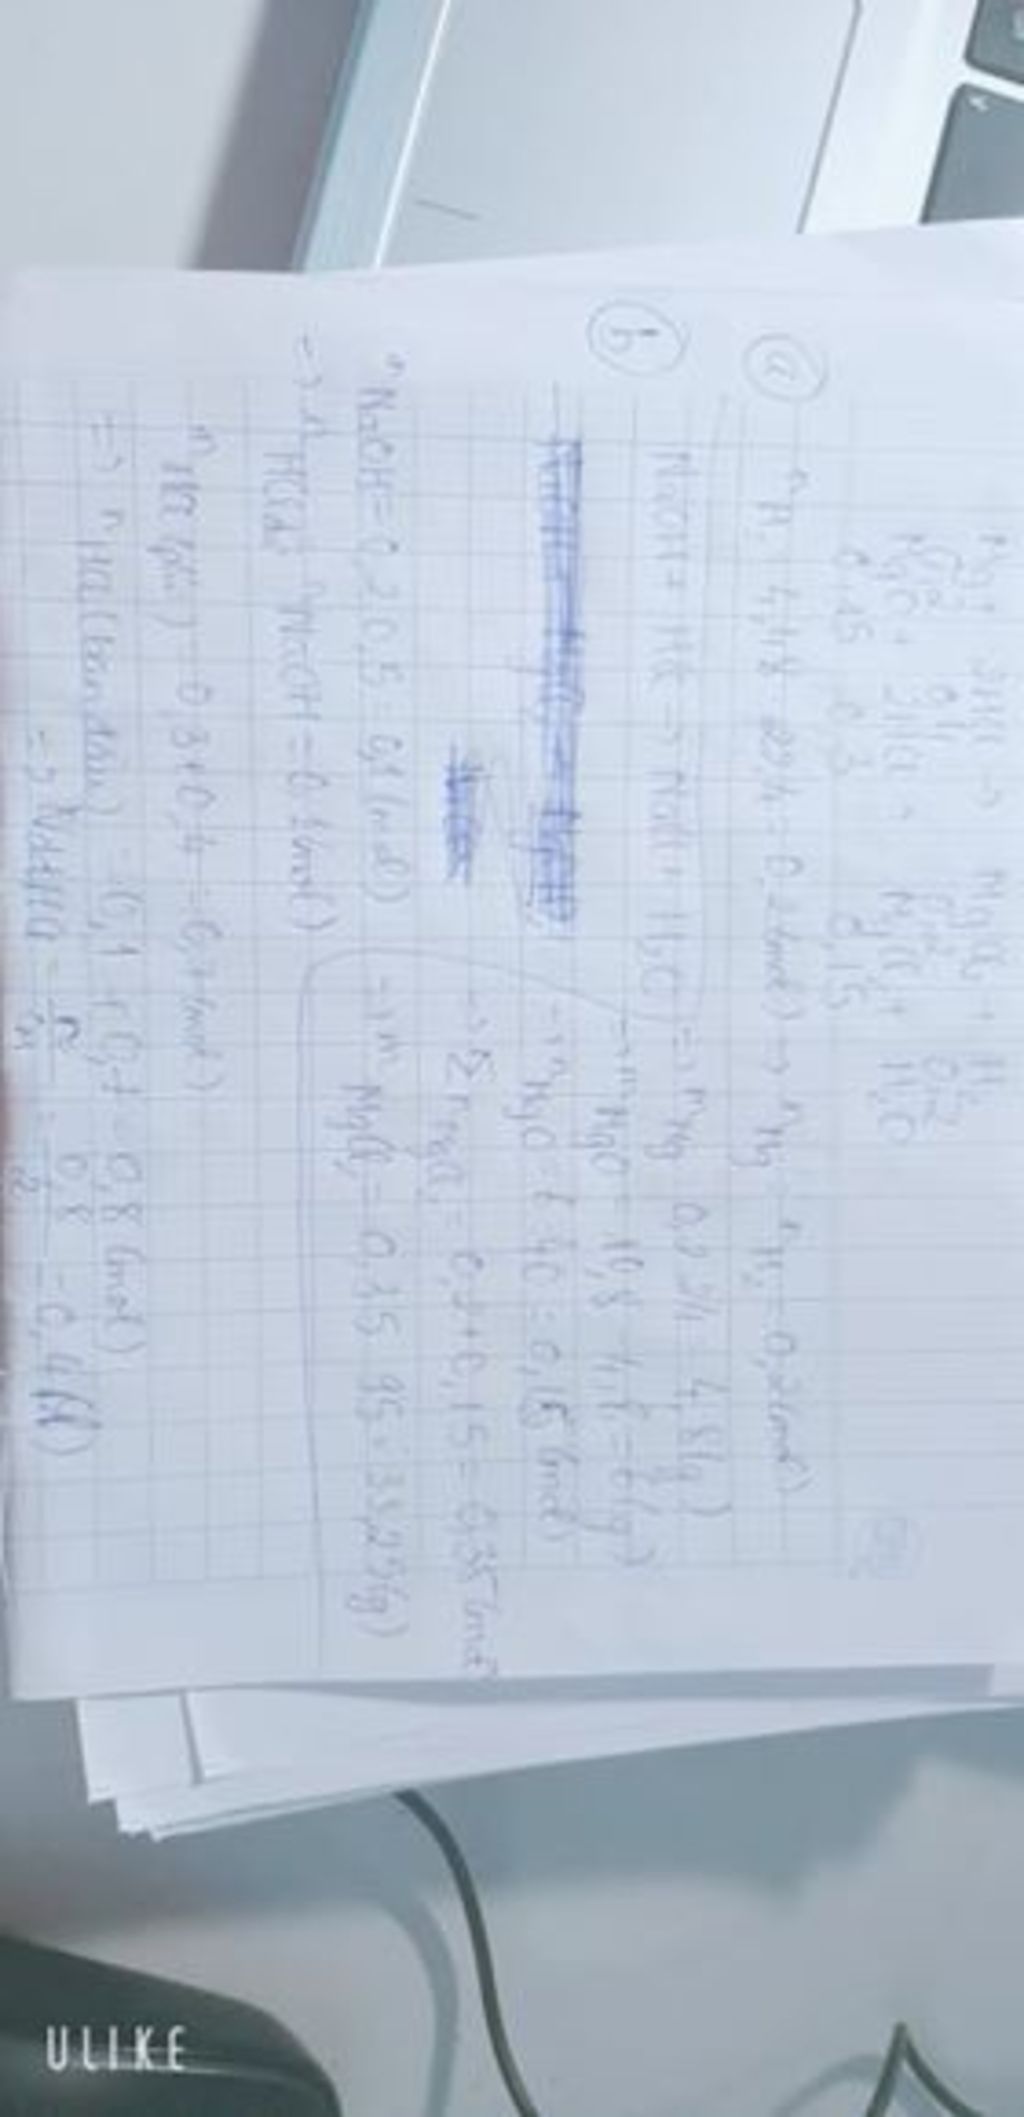 Mg + 2HCl -> MgCl2 + H2
0,2 0,4 0,2 0,2
MgO + 2HCl -> MgCl2 + H2O
0,15 0,3 0,15
a nH2 = 4,48 : 22,4 = 0,2 (mol) -> nMg = nH2 = 0,2 (mol)
=> mMg = 0,2.24 = 4,8 (g)
-> mMgO = 10,8 - 4,8 = 6 (g)
-> nMgO = 6 : 40 = 0,15 (mol)
-> Σ nMgCl2 = 0,2 + 0,15 = 0,35 (mol)
-> mMgCl2 = 0,35 . 95 = 33,25 (g)
b NaOH + HCl -> NaCl + H2O
nNaOH = 0,2.0,5 = 0,1 (mol)
-> nHCl dư = nNaOH = 0,1 (mol)
nHCl (pứ) = 0,3 + 0,4 = 0,7 (mol)
=> nHCl (ban đầu) = 0,1 + 0,7 = 0,8 (mol)
= 0,8 / 2 = 0,4 (M)
ULIKE